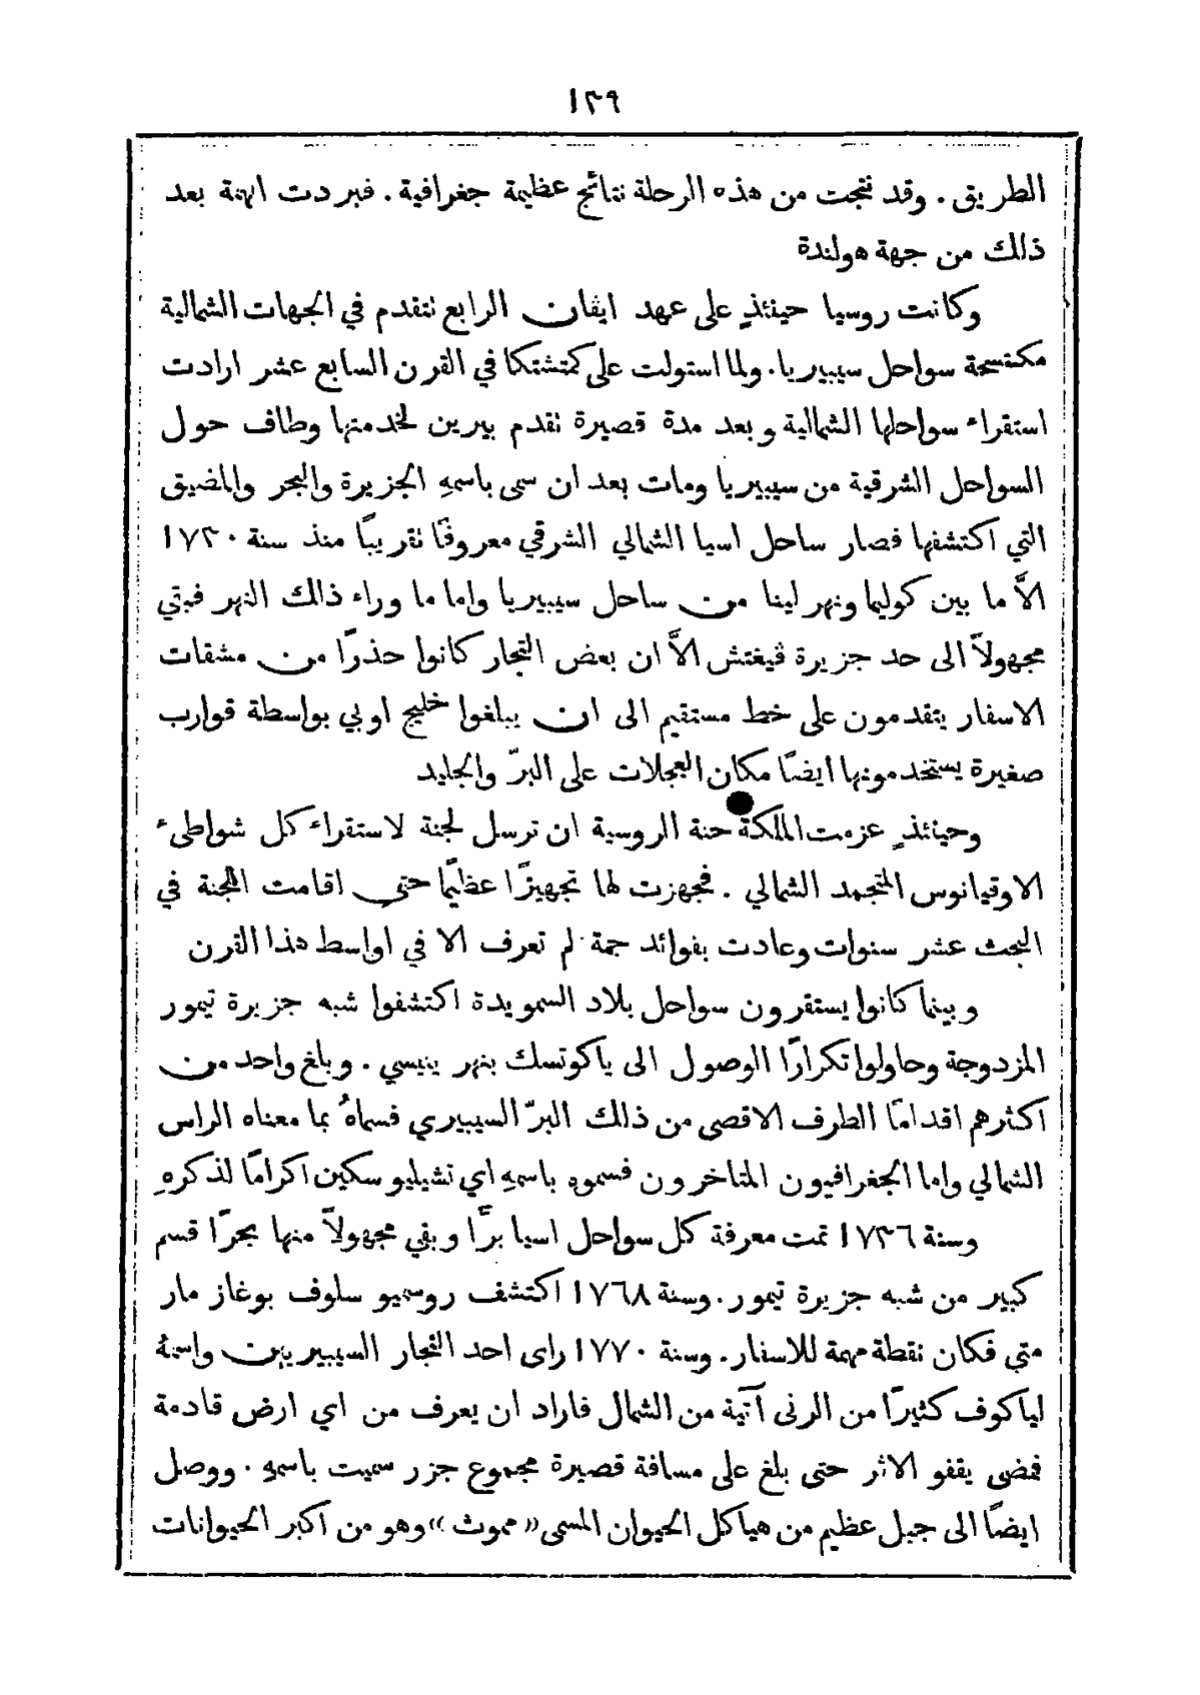 ١٣٩
الطريق . وقد نتجت من هذه الرحلة نتائج عظيمة جغرافية . فبردت الهمة بعد
ذلك من جهة هولندة
وكانت روسيا حينئذٍ على عهد ايڤان الرابع نتقدم في الجهات الشمالية
مكتسحة سواحل سيبيريا . ولما استولت على كمتشتكا في القرن السابع عشر ارادت
استقراء سواحلها الشمالية وبعد مدة قصيرة نقدم بيرين لخدمتها وطاف حول
السواحل الشرقية من سيبيريا ومات بعد ان سمى باسمهِ الجزيرة والبحر والمضيق
التي اكتشفها فصار ساحل اسيا الشمالي الشرقي معروفًا نقريبًا منذ سنة ١٧٣٠
الاَّ ما بين كوليما ونهر لينا من ساحل سيبيريا واما ما وراء ذلك النهر فبقي
مجهولاً الى حد جزيرة ڤيغتش الاَّ ان بعض التجار كانوا حذرًا من مشقات
الاسفار يتقدمون على خط مستقيم الى ان يبلغوا خليج اوبي بواسطة قوارب
صغيرة يستخدمونها ايضًا مكان العجلات على البرّ والجليد
وحينئذٍ عزمت الملكة حنة الروسية ان ترسل لجنة لاستقراء كل شواطىء
الاوقيانوس المتجمد الشمالي . فجهزت لها تجهيزًا عظيمًا حتى اقامت اللجنة في
البحث عشر سنوات وعادت بفوائد جمة لم تعرف الا في اواسط هذا القرن
وبينما كانوا يستقرون سواحل بلاد السمويدة اكتشفوا شبه جزيرة تيمور
المزدوجة وحاولوا تكرارًا الوصول الى ياكوتسك بنهر ينيسي . وبلغ واحد من
اكثرهم اقدامًا الطرف الاقصى من ذلك البرّ السيبيري فسماهُ بما معناه الراس
الشمالي واما الجغرافيون المتاخرون فسموه باسمهِ اي تشيليوسكين اكرامًا لذكرهِ
وسنة ١٧٣٦ تمت معرفة كل سواحل اسيا برًّا وبقي مجهولاً منها بحرًا قسم
كبير من شبه جزيرة تيمور . وسنة ١٧٦٨ اكتشف روسميو سلوف بوغاز مار
متي فكان نقطة مهمة للاسفار . وسنة ١٧٧٠ راى احد التجار السيبيريين واسمهُ
لياكوف كثيرًا من الرنى آتية من الشمال فاراد ان يعرف من اي ارض قادمة
فمضى يقفو الاثر حتى بلغ على مسافة قصيرة مجموع جزر سميت باسمهِ . ووصل
ايضًا الى جبل عظيم من هياكل الحيوان المسمى «مموث» وهو من اكبر الحيوانات